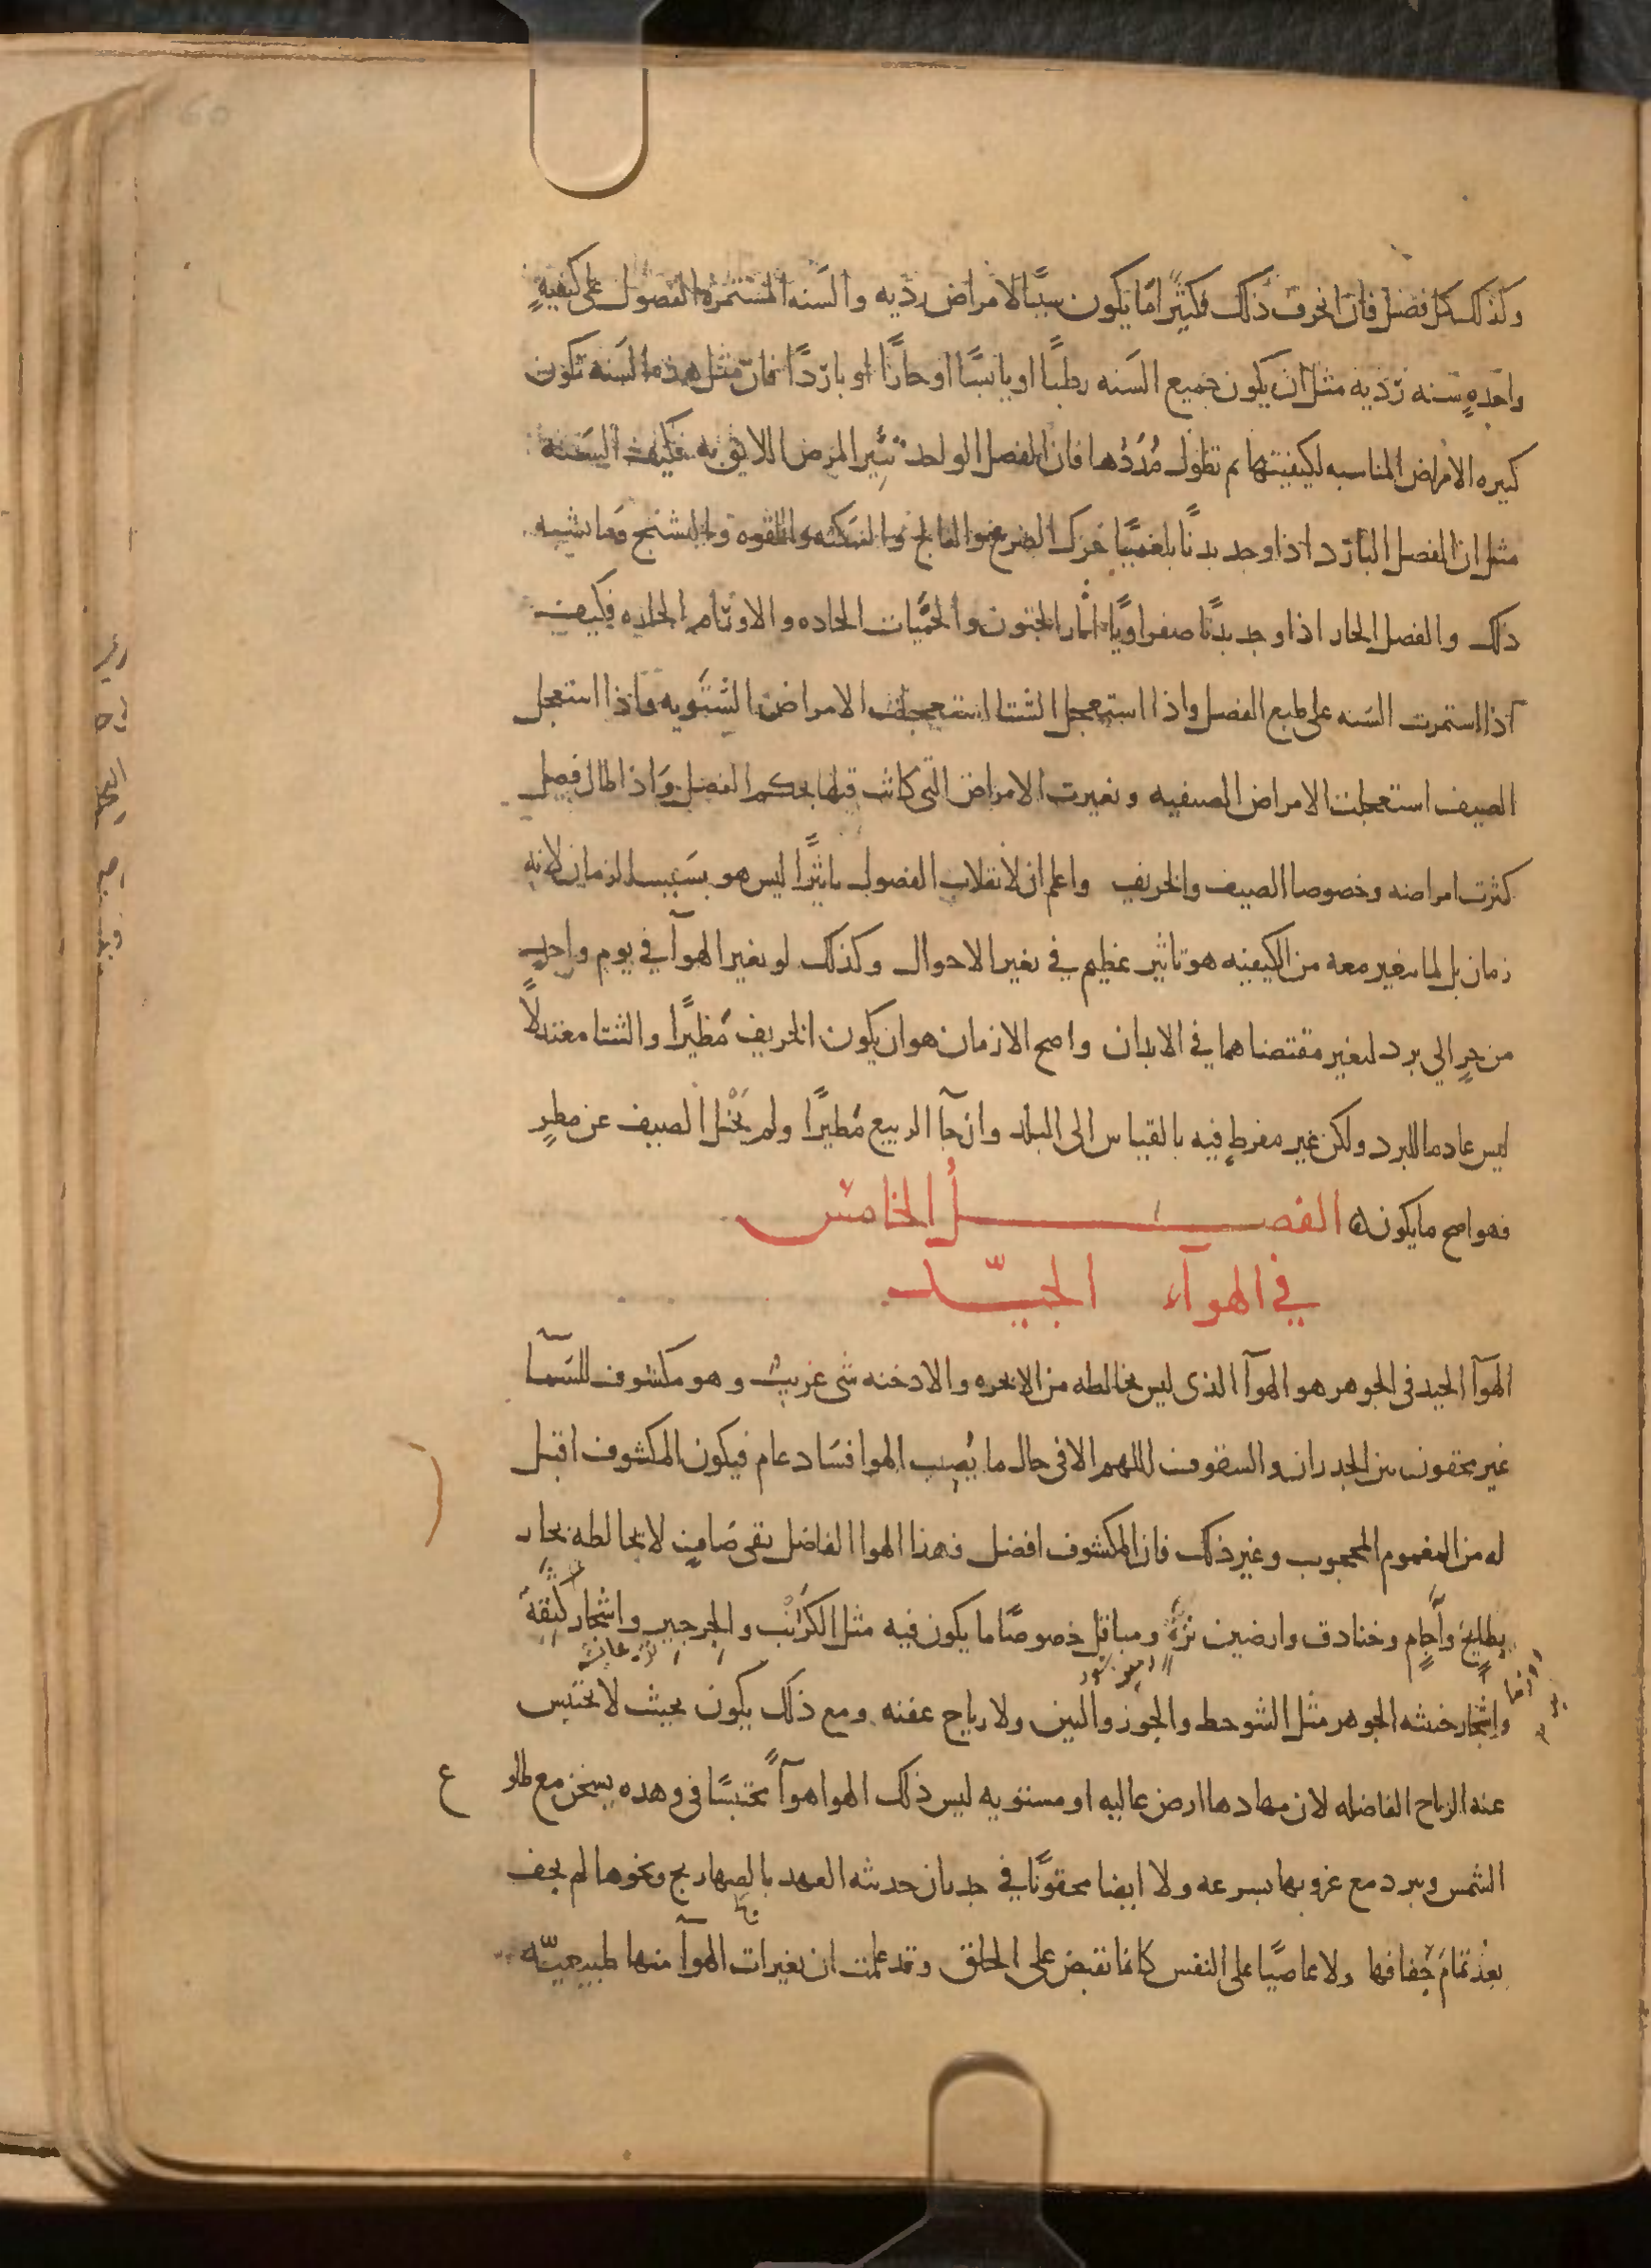 وكذلك كل فصل فان انحرف ذلك فكثيرا ما يكون سببًا لامراض رديه والسنه المستمرة الفصول على كيفيةٍ
واحدةٍ سنه رديه مثل ان يكون جميع السنه رطبًا او يابسًا او حارًا او باردًا فان مثل هذه السنه تكون
كثيره الامراض المناسبه لكيفيتها ثم تطول مُدَدُها فان الفصل الواحد يُثير المرض اللايق به فكيف السنه
مثل ان الفصل البارد اذا وجد بدنًا بلغميًا حرك الصرع والفالج والسكته واللقوه والتشنج وما يشبه
ذلك والفصل الحار اذا وجد بدنًا صفراويًا اثار الجنون والحُمَّيات الحاده والاورام الحاره فكيف
اذا استمرت السنه على طبع الفصل واذا استعجل الشتا استعجلت الامراض الشتويه واذا استعجل
الصيف استعجلت الامراض الصيفيه وتغيرت الامراض التي كانت قبلها بحكم الفصل واذا طال فصل
كثرت امراضه وخصوصا الصيف والخريف واعلم ان لانقلاب الفصول تاثيرًا ليس هو بسبب الزمان لانه
زمان بل لما يتغير معه من الكيفيه هو تاثير عظيم في تغير الاحوال وكذلك لو تغير الهوآ في يوم واحدٍ
من حرٍ الي برد لتغير مقتضاهما في الابدان واصح الازمان هو ان يكون الخريف مطيرًا والشتا معتدلًا
ليس عادما للبرد ولكن غير مفرطٍ فيه بالقياس الى البلد وان جآ الربيع مُطيرًا ولم يَخْل الصيف عن مطرٍ
فهو اصح ما يكون ه الفصـل الخامس
في الهوآء الجيّد
الهوآ الجيد فى الجوهر هو الهوآ الذى ليس يخالطه من الابخره والادخنه شى غريب وهو مكشوف للسمآ
غير محقون بين الجدران والسقوف اللهم الا فى حال ما يُصيب الهوا فساد عام فيكون المكشوف اقبل
له من المغموم المحجوب وغير ذلك فان المكشوف افضل فهذا الهوا الفاضل نقى صافٍ لا يخالطه بخار
بطايح وآجام وخنادق وارضين نزةٍ ومباقل خصوصًا ما يكون فيه مثل الكرنب والجرجير واشجار كثيفة
واشجار خبيثه الجوهر مثل الشوحط والجوز والتين ولا رياح عفنه ومع ذلك يكون بحيث لا تحتبس
عنه الرياح الفاضله لان مهادها ارض عاليه او مستويه ليس ذلك الهوا هوآً محتبسًا فى وهده يسخن مع طلو ع
الشمس ويبرد مع غروبها بسرعه ولا ايضا محقونًا في جدران حديثه العهد بالصهاريج ونحوها لم يجف
بعدُ تمامَ جفافها ولا عاصيًا على النفس كانما تقبض على الحلق وقد علمت ان تغيرات الهوآ منها طبيعيّه